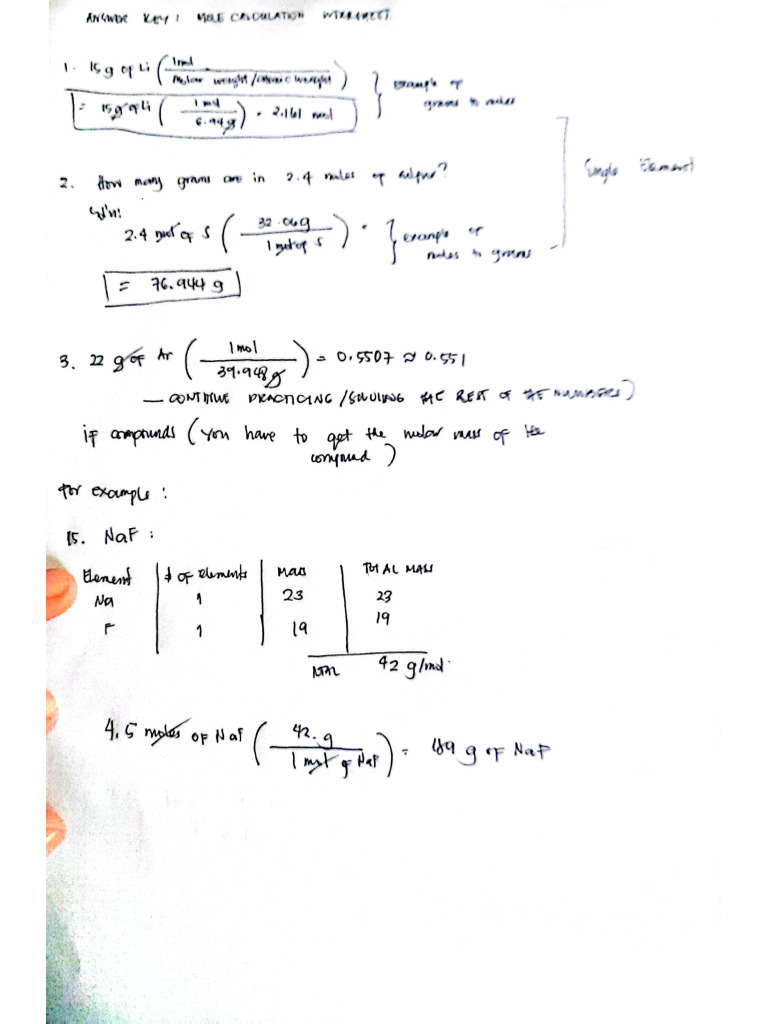 ANSWER KEY : MOLE CALCULATION WORKSHEET
1. 15g of Li ( 1 mol / molar weight/atomic weight ) } example of grams to moles
= 15g of Li ( 1 mol / 6.94g ) = 2.161 mol
Single Element
2. How many grams are in 2.4 moles of sulfur?
Sol'n:
2.4 mol of S ( 32.06g / 1 mol of S ) = } example of moles to grams
= 76.944 g
3. 22 g of Ar ( 1 mol / 39.948g ) = 0.5507 ≈ 0.551
— CONTINUE PRACTICING/SOLVING THE REST OF THE NUMBERS)
if compounds (You have to get the molar mass of the
compound)
For example :
15. NaF :
Element # of Elements Mass TOTAL MASS
Na 1 23 23
F 1 19 19
TOTAL 42 g/mol.
4.5 moles OF NaF ( 42. g / 1 mol of NaF ) = 189 g OF NaF